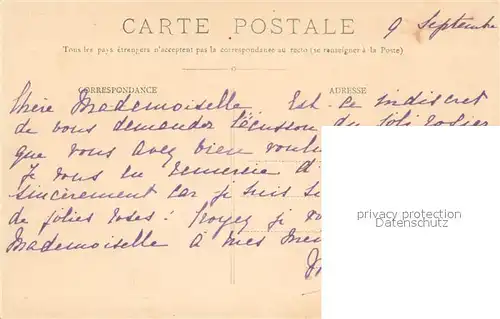 CARTE POSTALE
9 Septembre
Tous les pays étrangers n'acceptent pas la correspondance au recto (se renseigner à la Poste)
CORRESPONDANCE
ADRESSE
Chère Mademoiselle. Est-ce indiscret
de vous demander l'écusson du joli rosier
que vous avez bien voulu
Je vous en remercie d'
sincèrement car je suis
de jolies roses! Croyez je vo
Mademoiselle à mes
privacy protection
watermark